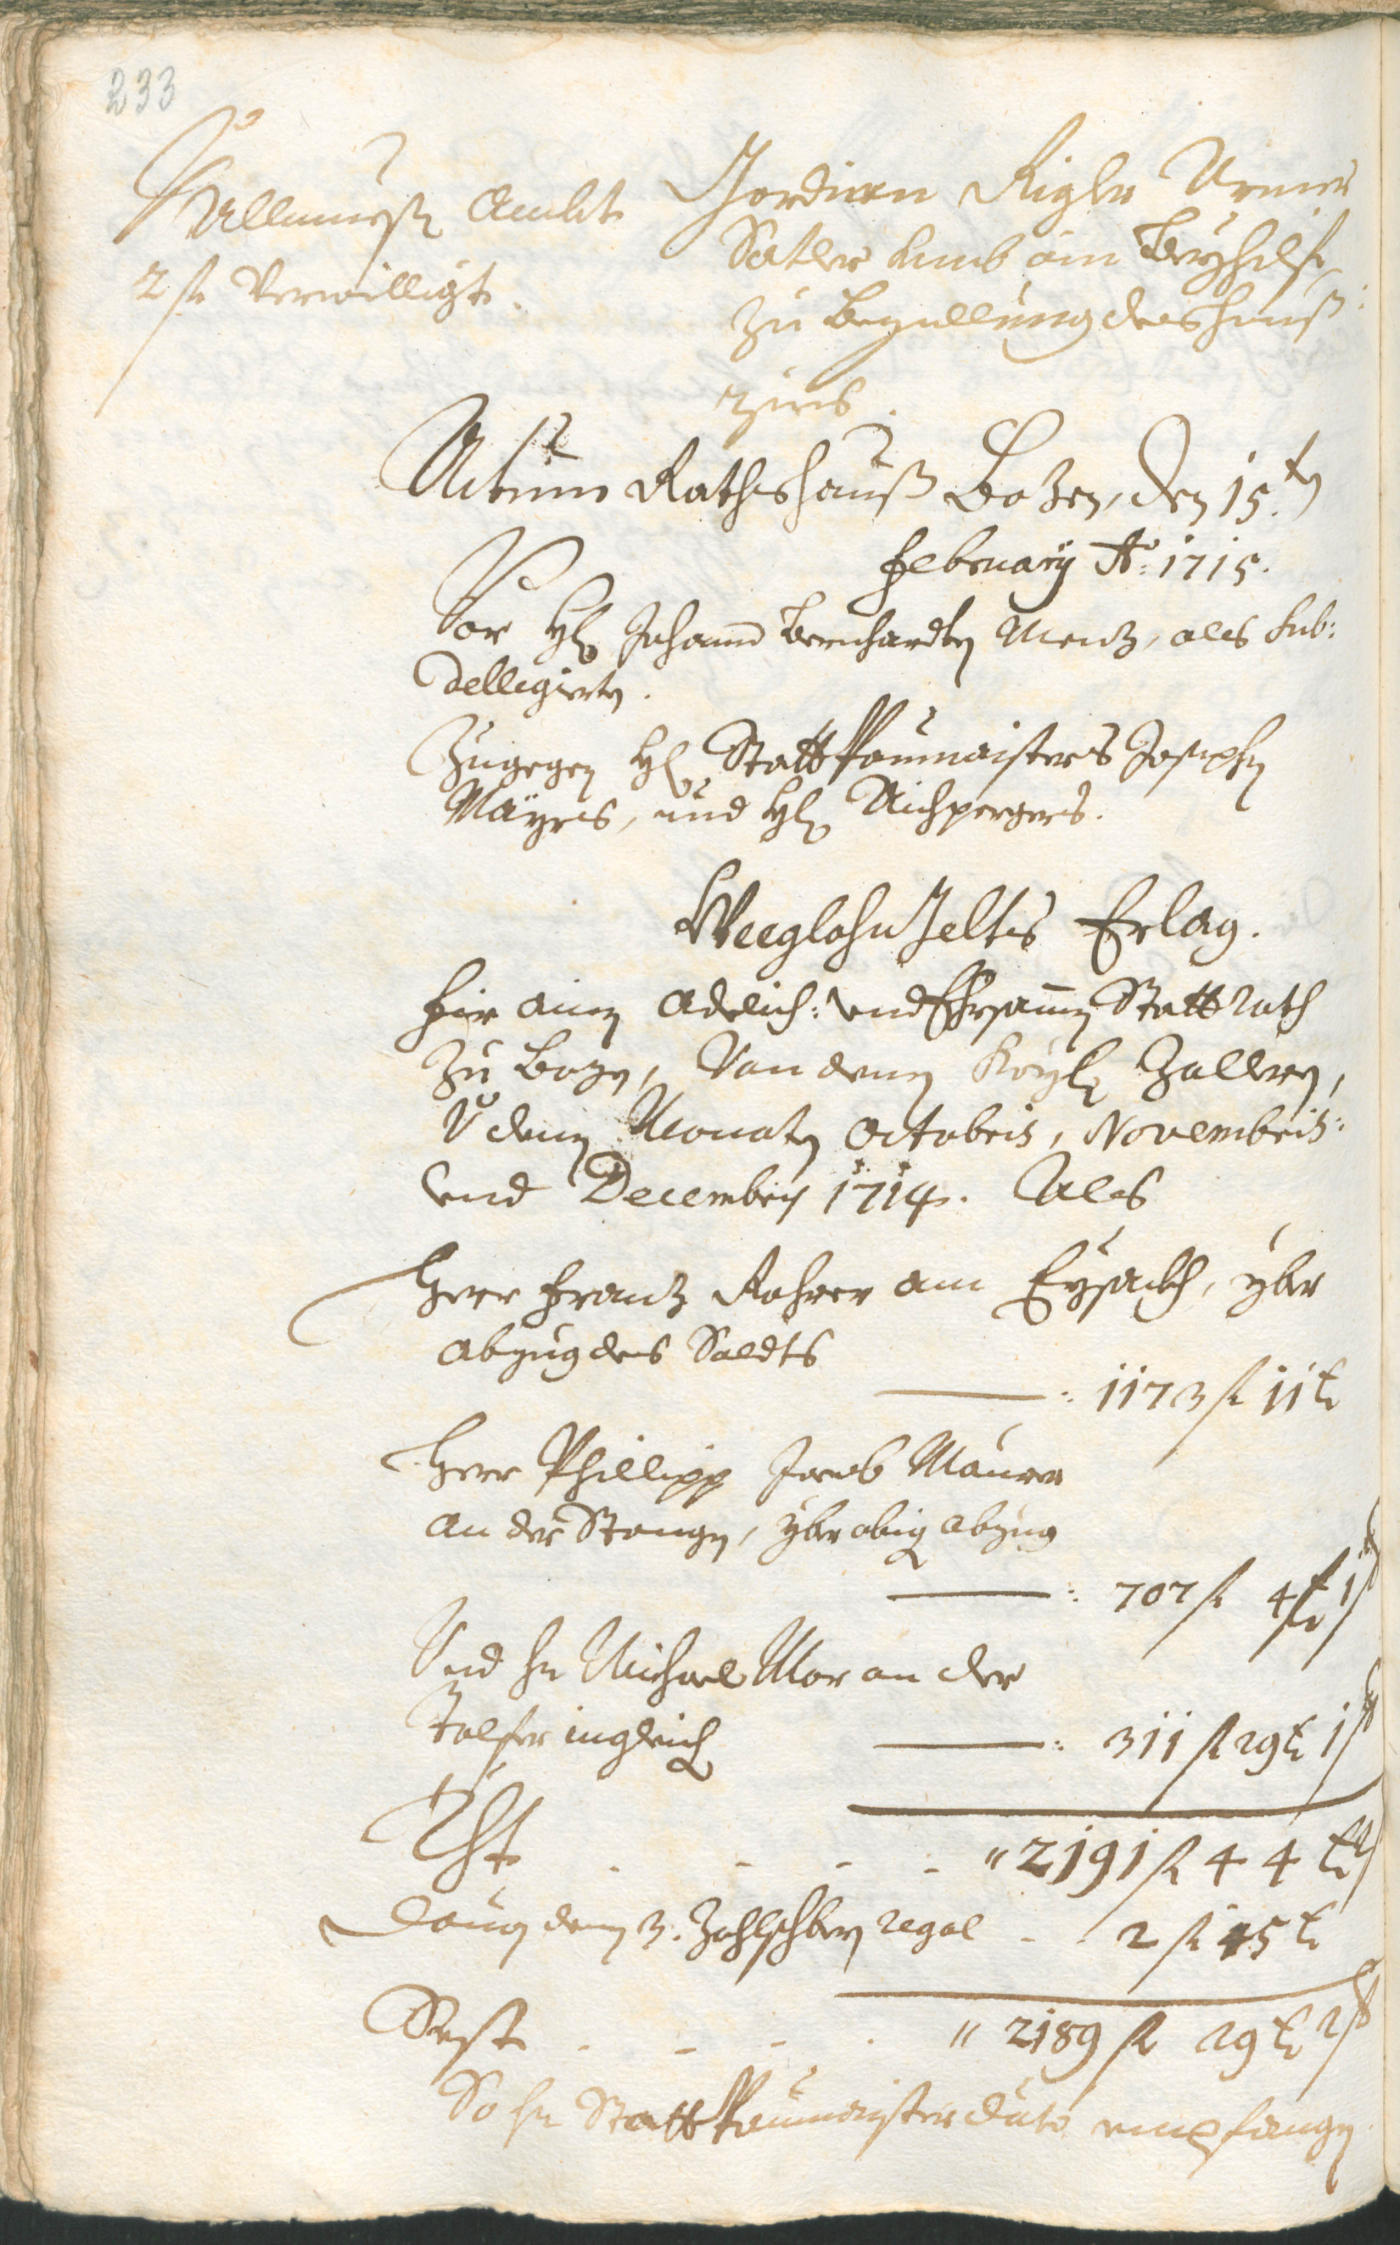 233
Allmues Ambt
2 fl verwilligt.
Jordian Rigler Armer
Satler umb ain Beyhilf
zu Bezallung des hauß
zins.
Actum Rathshauß Bozen, den 15.ten
February Ao: 1715.
Vor Hl Johann Bernhardten Menz, als Sub:
dellegierten.
Zugegen Hl Statt Paumaisters Josephen
Mayrs, und Hl Aichpergers.
Weeglohn Gelts Erlag.
Hir ainen Adelich: und Ehrsamen Statt Rath
zu Bozen, Von denen Köyl: Zallern,
V denen Monaten Octobris, Novembris:
und Decembris 1714. Als
Herr Franz Rohrer am Eysackh, yber
abzug des Soldts
: 1173 fl 11 k
Herr Phillipp Jacob Maurer
an der Stangen, yber obig abzug
: 707 fl 4 k 1
Und Hr Michael Mor an der
Talfer ingleichen
: 311 fl 29 k 1
Tht . - - - " 2191 fl 44 k 2
Dauon denen 3. Zohlschbern regal - 2 fl 15 k
Rest . - - . " 2189 fl 29 k 2
So Hr Statt Paumaister dato empfangen